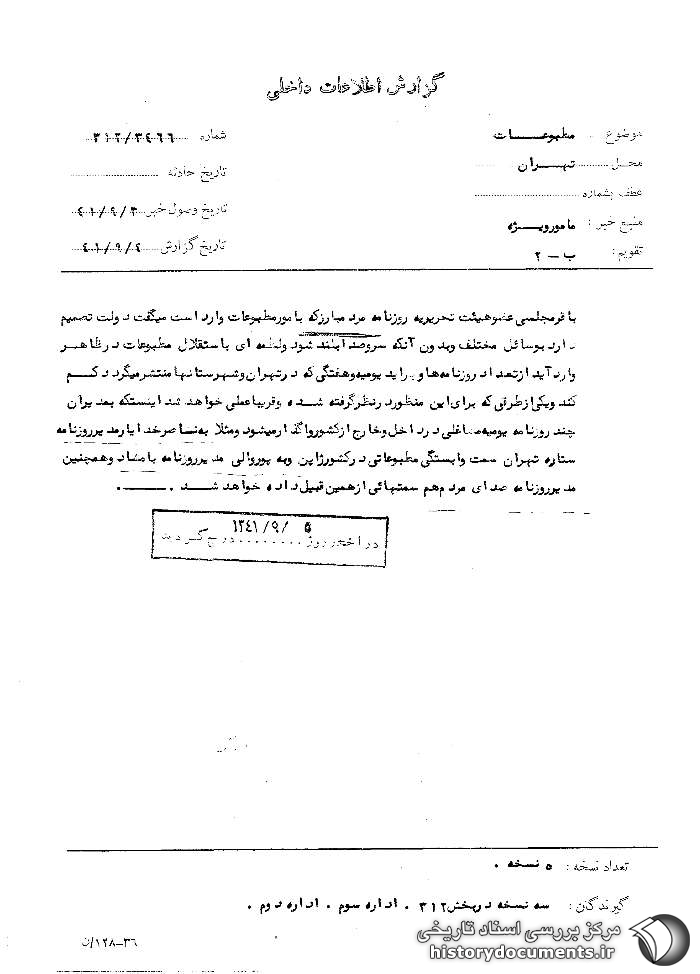 گزارش اطلاعات داخلی
موضوع مطبوعـــات
شماره ۳۱۲/۳٤٦٦
محـل تهـــران
تاریخ حادثه
عطف بشماره
تاریخ وصول خبر ٤١/٩/٣
منبع خبر : مامورویــژه
تاریخ گزارش ٤١/٩/٤
تقویم : ب – ۲
باقرمجلسی عضوهیئت تحریریه روزنامه مرد مبارزکه بامورمطبوعات وارد است میگفت دولت تصمیم
دارد بوسائل مختلف وبدون آنکه سروصدا بلند شود ولطمه ای باستقلال مطبوعات در ظاهــر
وارد آید ازتعداد روزنامه‌ها وجراید یومیه وهفتگی که درتهران وشهرستانها منتشرمیگردد کــم
کند ویکی ازطرقی که برای این منظور درنظرگرفته شــده وقریبا عملی خواهد شد اینستکه بمدیران
چند روزنامه یومیه مشاغلی در داخل وخارج ازکشور واگذارمیشود ومثلا به نساصرخدایارمدیرروزنامه
ستاره تهران سمت وابستگی مطبوعاتی درکشورژاپن وبه پوروالی مدیرروزنامه بامشاد وهمچنین
مدیرروزنامه صدای مردم هم سمتهائی ازهمین قبیل داده خواهد شــد .
۱۳٤۱/۹/ ۵
در اخبار روز ........ درج گردید
تعداد نسخه : ۵ نسخه .
گیرندگان : سه نسخه دربخش ۳۱۲ . اداره سوم . اداره دوم .
۳۶–۱۲۸/ن
مرکز بررسی اسناد تاریخی
historydocuments.ir